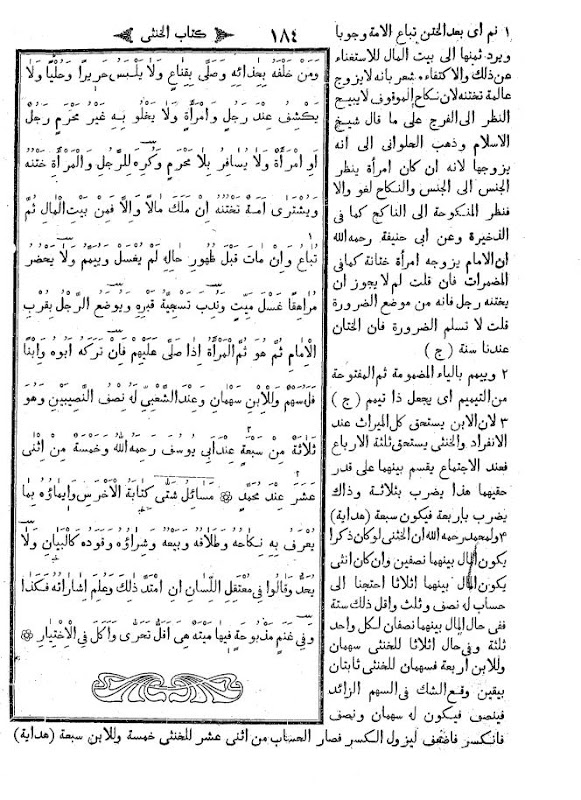 ١٨٤
كتاب الخنثى
وَمَنْ خَلْفَهُ بِحِذَائِهِ وَصَلَّى بِقِنَاعٍ وَلَا يَلْبَسُ حَرِيرًا وَحُلِيًّا وَلَا
يَكْشِفُ عِنْدَ رَجُلٍ وَامْرَأَةٍ وَلَا يَخْلُو بِهِ غَيْرُ مَحْرَمٍ رَجُلٌ
اَوِ امْرَأَةٌ وَلَا يُسَافِرُ بِلَا مَحْرَمٍ وَكُرِهَ لِلرَّجُلِ وَالْمَرْأَةِ خَتْنُهُ
وَيُشْتَرَى اَمَةٌ تَخْتُنُهُ اِنْ مَلَكَ مَالًا وَاِلَّا فَمِنْ بَيْتِ الْمَالِ ثُمَّ
١
تُبَاعُ وَاِنْ مَاتَ قَبْلَ ظُهُورِ حَالِهِ لَمْ يُغْسَلْ وَيُيَمَّمُ وَلَا يَحْضُرُ
مُرَاهِقًا غَسْلَ مَيِّتٍ وَنُدِبَ تَسْجِيَةُ قَبْرِهِ وَيُوضَعُ الرَّجُلُ بِقُرْبِ
الْاِمَامِ ثُمَّ هُوَ ثُمَّ الْمَرْأَةُ اِذَا صَلَّى عَلَيْهِمْ فَاِنْ تَرَكَهُ اَبُوهُ وَابْنًا
فَلَهُ سَهْمٌ وَلِلْاِبْنِ سَهْمَانِ وَعِنْدَ الشَّعْبِيِّ لَهُ نِصْفُ النَّصِيبَيْنِ وَهُوَ
ثَلَاثَةٌ مِنْ سَبْعَةٍ عِنْدَ اَبِى يُوسُفَ رَحِمَهُ اللهُ وَخَمْسَةٌ مِنْ اِثْنَى
عَشَرَ عِنْدَ مُحَمَّدٍ ۞ مَسَائِلُ شَتَّى كِتَابَةُ الْاَخْرَسِ وَاِيمَاؤُهُ بِمَا
يُعْرَفُ بِهِ نِكَاحُهُ وَطَلَاقُهُ وَبَيْعُهُ وَشِرَاؤُهُ وَقَوَدُهُ كَالْبَيَانِ وَلَا
يُحَدُّ وَقَالُوا فِى مُعْتَقَلِ اللِّسَانِ اِنِ امْتَدَّ ذٰلِكَ وَعُلِمَ اِشَارَاتُهُ فَكَذَا
وَفِى غَنَمٍ مَذْبُوحَةٍ فِيهَا مَيْتَةٌ هِىَ اَقَلُّ تَحَرَّى وَاَكَلَ فِى الْاِخْتِيَارِ ۞
١ ثم اى بعد الختن تباع الامة وجوبا
ويرد ثمنها الى بيت المال للاستغناء
عن ذلك والاكتفاء شعر بانه لا يزوج
عالمة تختنه لان نكاح الموقوف لا يبيح
النظر الى الفرج على ما قال شيخ
الاسلام وذهب الحلوانى الى انه
يزوجها لانه ان كان امرأة ينظر
الجنس الى الجنس والنكاح لغو والا
فنظر المنكوحة الى الناكح كما فى
الذخيرة وعن ابى حنيفة رحمه الله
ان الامام يزوجه امرأة ختانة كما فى
المضمرات فان قلت لم لا يجوز ان
يختنه رجل فانه من موضع الضرورة
قلت لا تسلم الضرورة فان الختان
عندنا سنة (ج)
٢ وييمم بالياء المضمومة ثم المفتوحة
من التيميم اى يجعل ذا تيمم (ج)
٣ لان الابن يستحق كل الميراث عند
الانفراد والخنثى يستحق ثلثة الارباع
فعند الاجتماع يقسم بينهما على قدر
حقيهما هذا يضرب بثلاثة وذاك
يضرب باربعة فيكون سبعة (هداية)
٤ ولمحمد رحمه الله ان الخنثى لو كان ذكرا
يكون المال بينهما نصفين وان كان انثى
يكون المال بينهما اثلاثا احتجنا الى
حساب له نصف وثلث واقل ذلك ستة
ففى حال المال بينهما نصفان لكل واحد
ثلثة وفى حال اثلاثا للخنثى سهمان
وللابن اربعة فسهمان للخنثى ثابتان
بيقين وقع الشك فى السهم الزائد
فينصف فيكون له سهمان ونصف
فانكسر فاضعف ليزول الكسر فصار الحساب من اثنى عشر للخنثى خمسة وللابن سبعة (هداية)